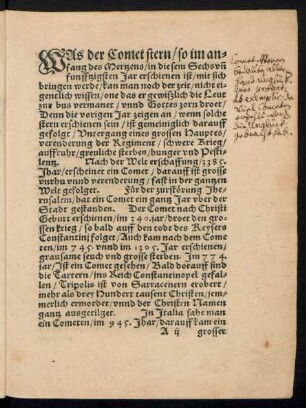 WAs der Comet stern/ so im an=
fang des Mertzens/ in diesem Sechs vñ
funfftzigsten Jar erschienen ist/ mit sich
bringen werde/ kan man noch der zeit/ nicht ei=
gentlich wissen/ one das er gewißlich die Leut
zur bus vermanet/ vnnd Gottes zorn droet/
Denn die vorigen Jar zeigen an/ wenn solche
stern erschienen sein/ ist gemeiniglich darauff
gefolget/ Vntergang eines grossen Hauptes/
verenderung der Regiment/ schwere Krieg/
auffruhr/ greuliche sterben/ hunger vnd Pesti=
lentz. Nach der Welt erschaffung/ 3285.
Jhar/ erscheinet ein Comet/ darauff ist grosse
vnrhu vnnd verenderung/ fast in der gantzen
Welt gefolget. Für der zurstörung Jhe=
rusalem/ hat ein Comet ein gantz Jar vber der
Stadt gestanden. Der Comet nach Christi
Geburt erschienen/ im 340. jar/ droet den gros=
sen krieg/ so bald auff den todt des Keysers
Constantini folget/ Auch kam nach dem Come=
ten/ im 745. vnnd im 1305. Jar erschienen/
grausame seuch vnd grosse sterben. Jm 774.
jar/ Jst ein Comet gesehen/ Bald dorauff sind
die Tartern/ ins Reich Constantinopel gefal=
len/ Tripolis ist von Sarracenern erobert/
mehr als drey Hundert tausent Christen/ jem=
merlich ermordet/ vnnd der Christen Namen
gantz ausgetilget. In Italia sahe man
ein Cometen/ im 945. Jhar/ darauff kam ein
A ij grosser